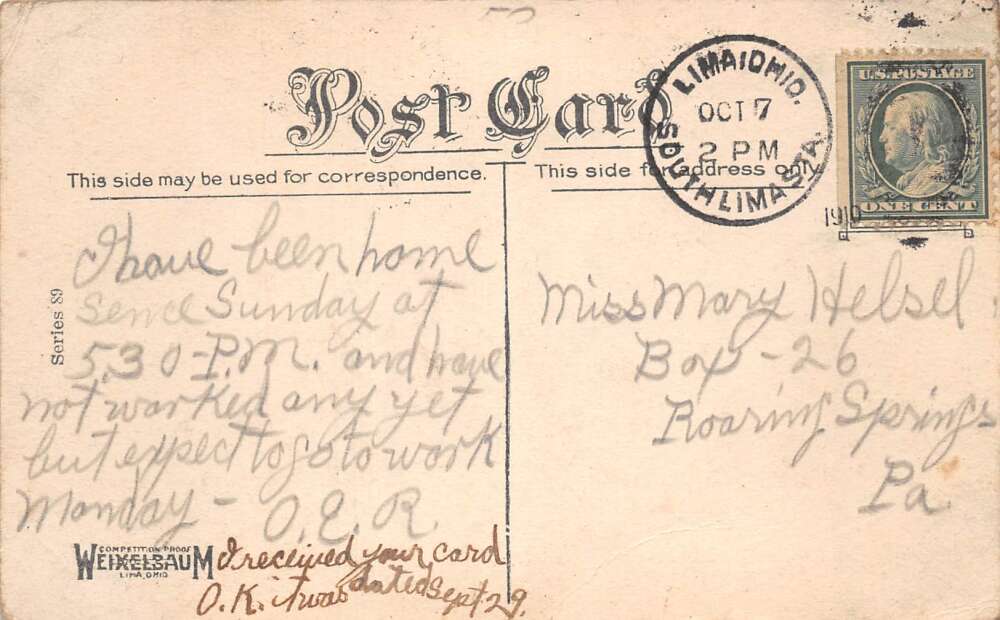 Post Card
This side may be used for correspondence.
This side for address only
LIMA, OHIO.
OCT 7
2 PM
SOUTH LIMA STA.
1910
U.S. POSTAGE
ONE CENT
Series 89
I have been home
sence Sunday at
5.30-P.M. and have
not worked any yet
but expect to go to work
Monday - O.E.R.
Miss Mary Helsel
Box-26
Roaring Springs
Pa.
COMPETITION PROOF
WEIXELBAUM
LIMA, OHIO
I received your card
O.K. it was dated Sept 29.